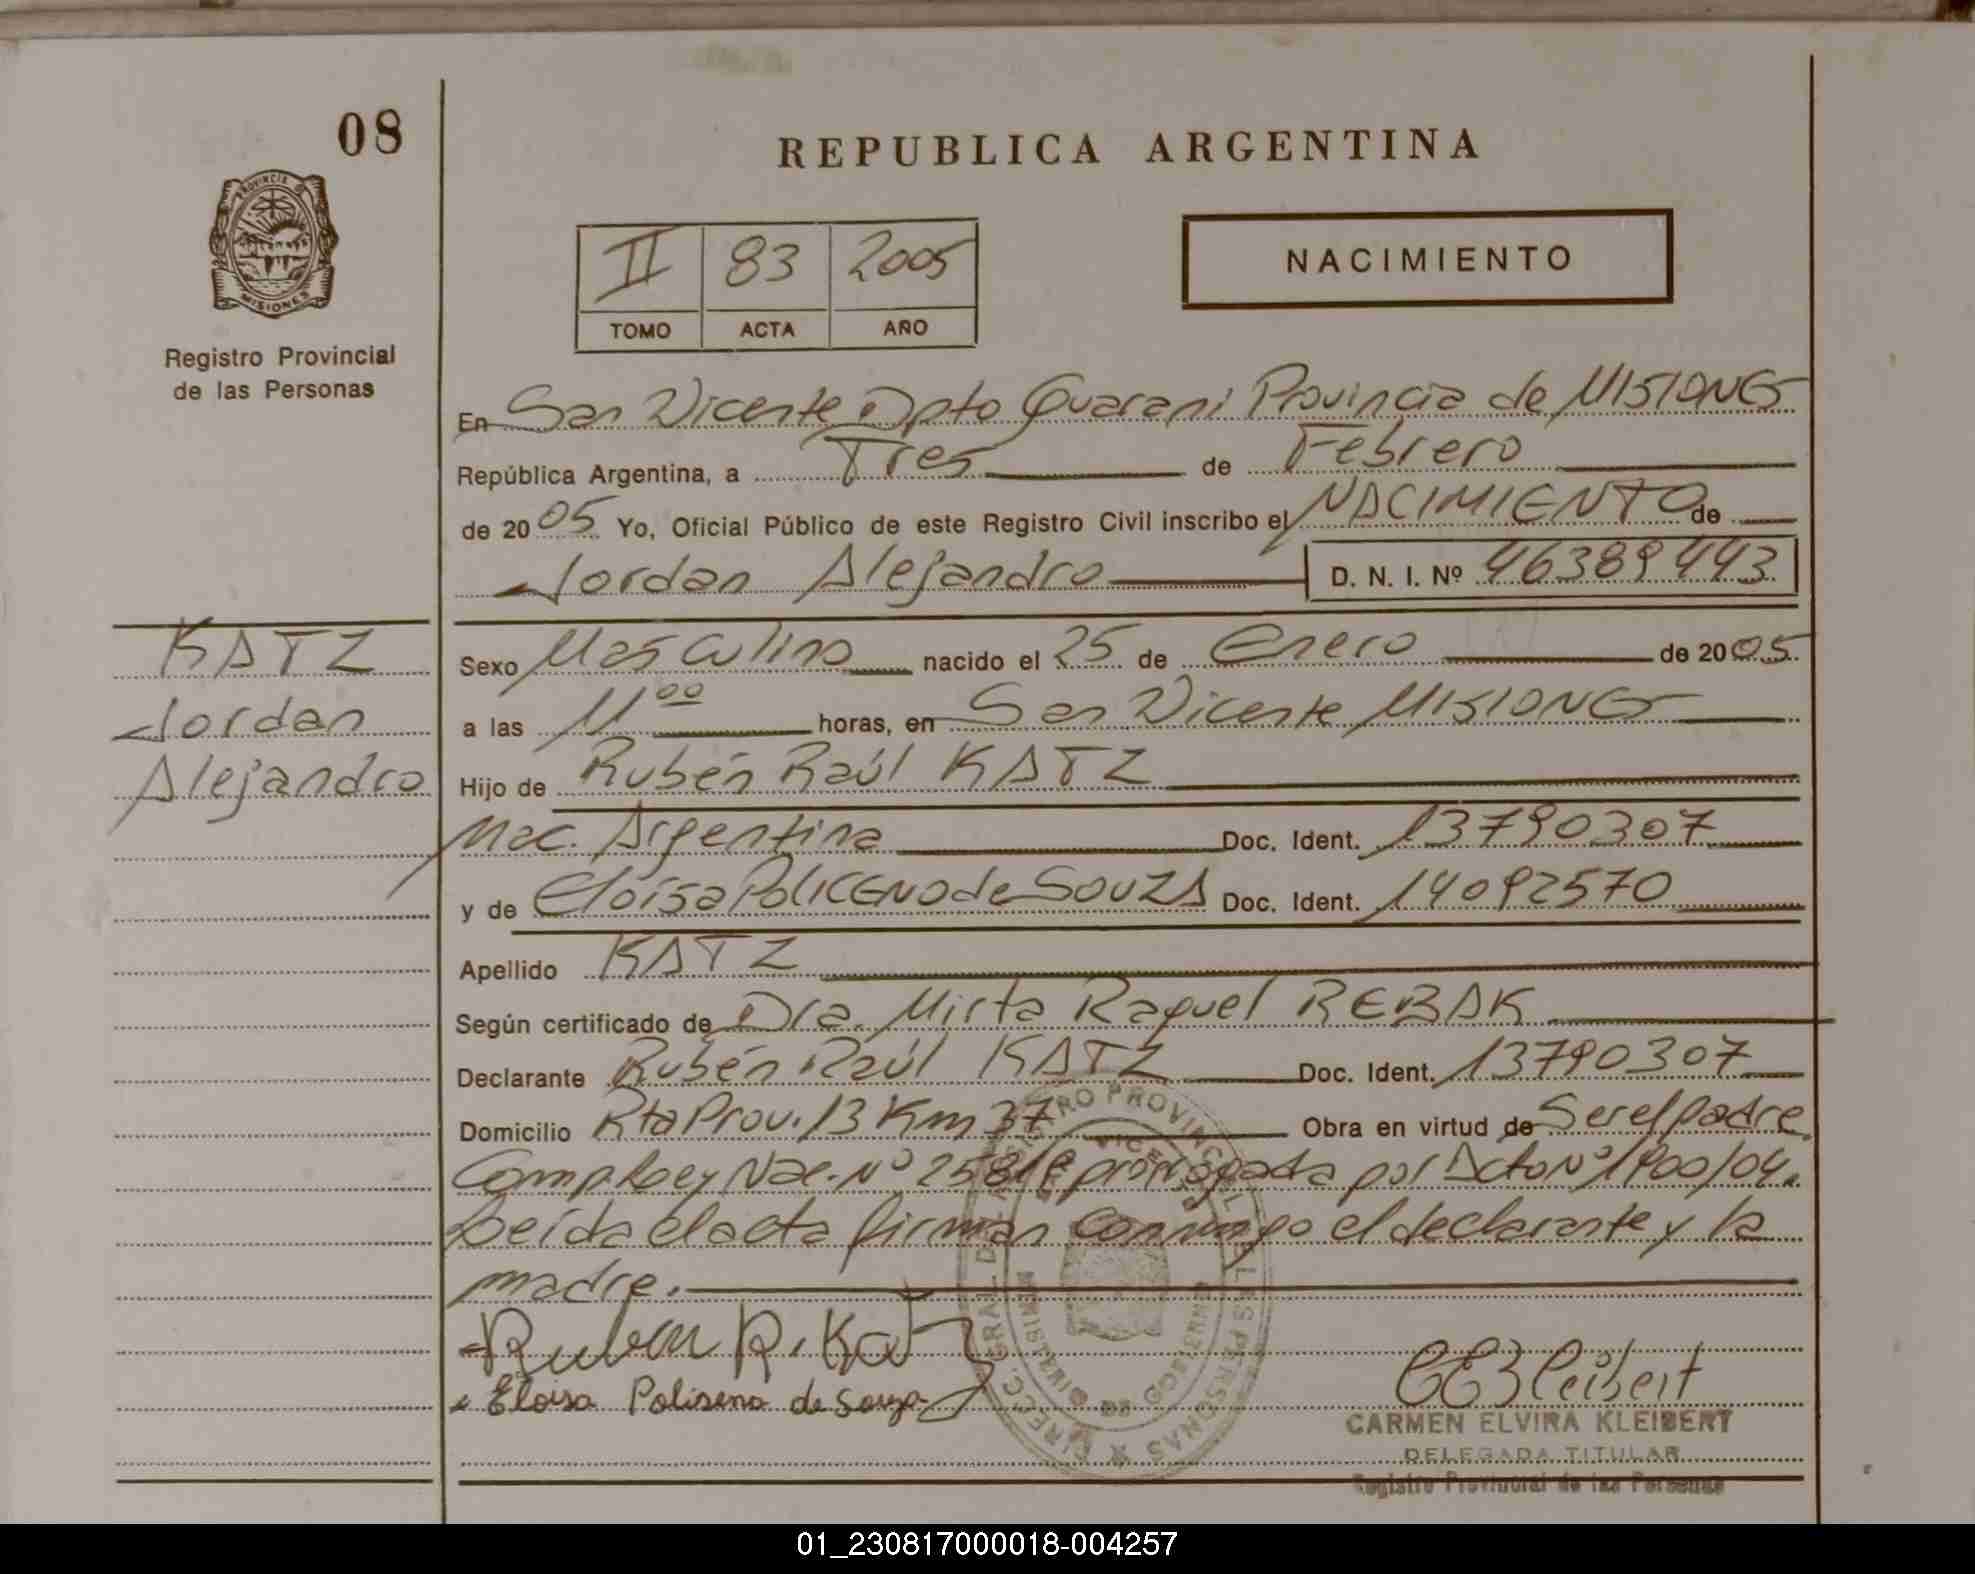 08
REPUBLICA ARGENTINA
PROVINCIA D
MISIONES
Registro Provincial
de las Personas
II 83 2005
TOMO ACTA AÑO
NACIMIENTO
En San Vicente Dpto Guarani Provincia de MISIONES
República Argentina, a Tres de Febrero
de 2005 Yo, Oficial Público de este Registro Civil inscribo el NACIMIENTO de
Jordan Alejandro D. N. I. Nº 46389443
KATZ
Jordan
Alejandro
Sexo Masculino nacido el 25 de Enero de 2005
a las 11 00 horas, en San Vicente MISIONES
Hijo de Rubén Raúl KATZ
Nac. Argentina Doc. Ident. 13790307
y de Eloísa POLICENO de SOUZA Doc. Ident. 14092570
Apellido KATZ
Según certificado de Dra. Mirta Raquel REBAK
Declarante Rubén Raúl KATZ Doc. Ident. 13790307
Domicilio Rta Prov. 13 Km 37 Obra en virtud de Ser el padre.
Nac. Nº prorrogada por Dcto Nº 1900/04.
Leída el acta firman conmigo el declarante y la
madre.
Ruben R. Katz
Eloisa Poliseno de Souza
CARMEN ELVIRA KLEIBERT
DELEGADA TITULAR
Registro Provincial de las Personas
01_230817000018-004257